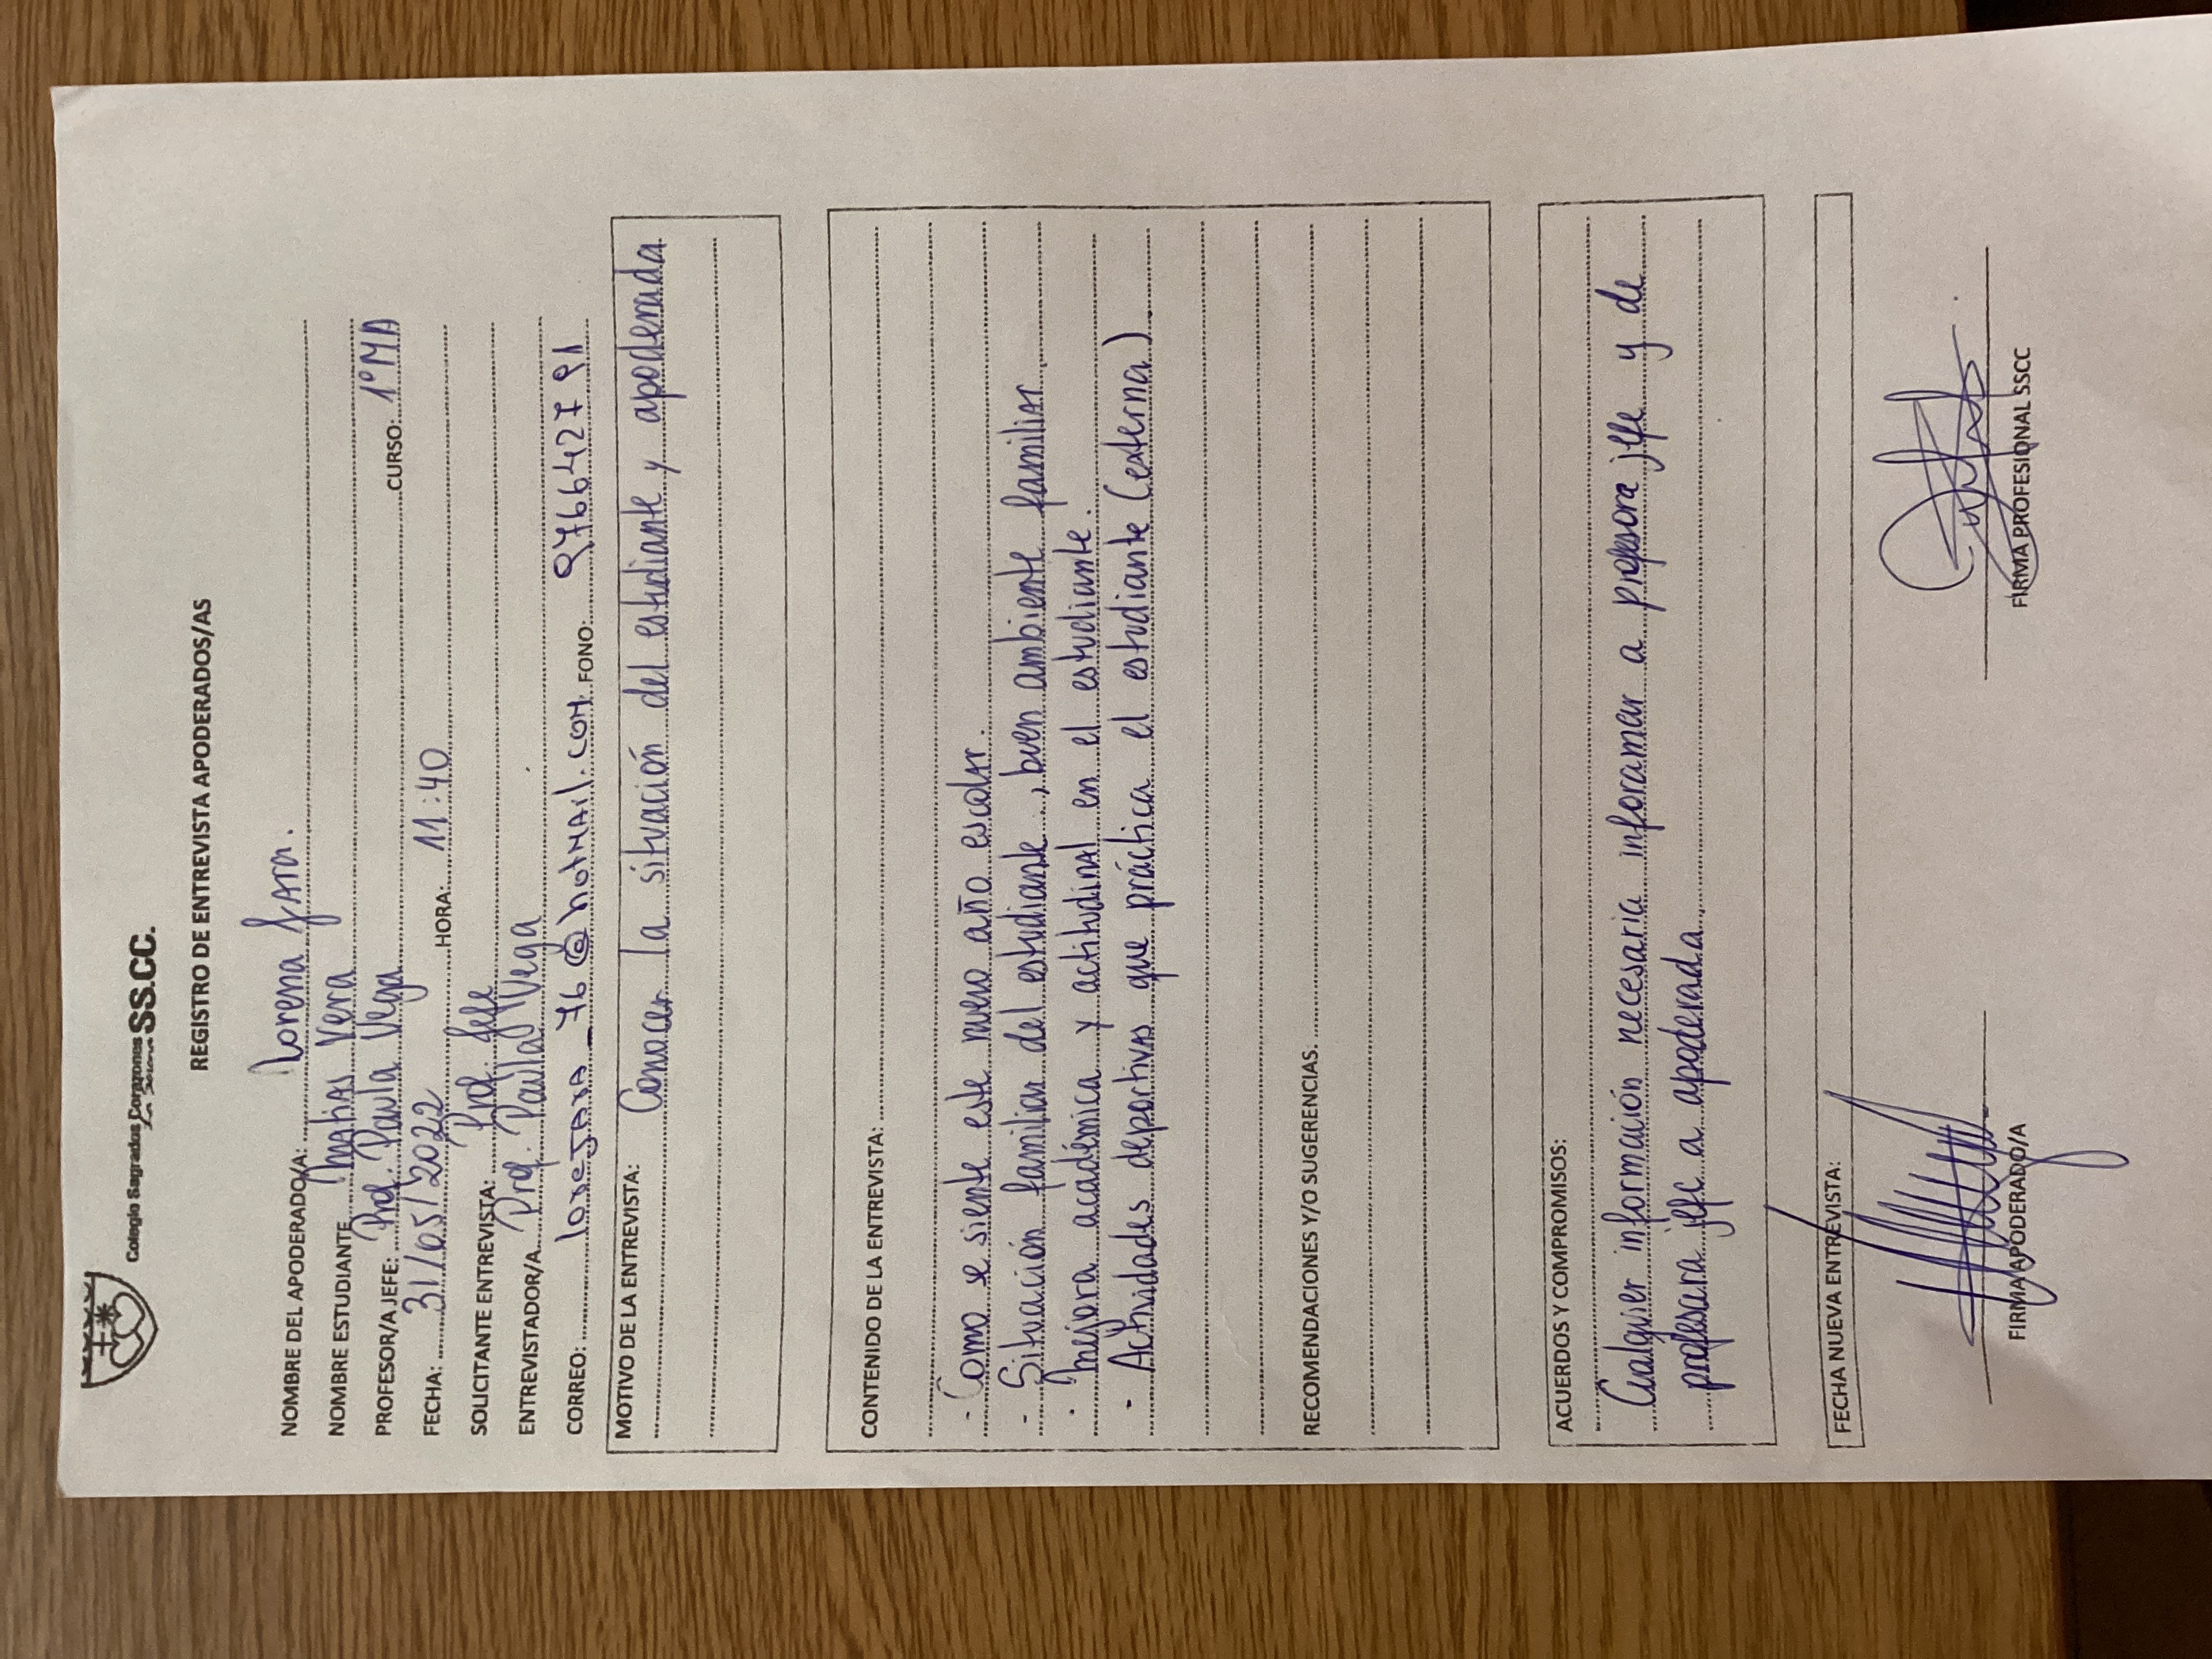 Colegio Sagrados Corazones SS.CC.
La Serena
REGISTRO DE ENTREVISTA APODERADOS/AS
NOMBRE DEL APODERADO/A: Lorena Jara.
NOMBRE ESTUDIANTE Matias Vera
PROFESOR/A JEFE: Prof. Paula Vega CURSO: 1° MA
FECHA: 31/05/2022 HORA: 11:40
SOLICITANTE ENTREVISTA: Prof. Jefe
ENTREVISTADOR/A Prof. Paula Vega
CORREO: loreJARA_76@hotmail.com FONO: 976642791
MOTIVO DE LA ENTREVISTA:
Conocer la situación del estudiante y apoderada
CONTENIDO DE LA ENTREVISTA:
- Como se siente este nuevo año escolar.
- Situación familiar del estudiante, buen ambiente familiar
- Mejora académica y actitudinal en el estudiante.
- Actividades deportivas que práctica el estudiante (externa)
RECOMENDACIONES Y/O SUGERENCIAS.
ACUERDOS Y COMPROMISOS:
Cualquier información necesaria inforamar a profesora jefe y de
profesara jefe a apoderada.
FECHA NUEVA ENTREVISTA:
FIRMA APODERADO/A FIRMA PROFESIONAL SSCC